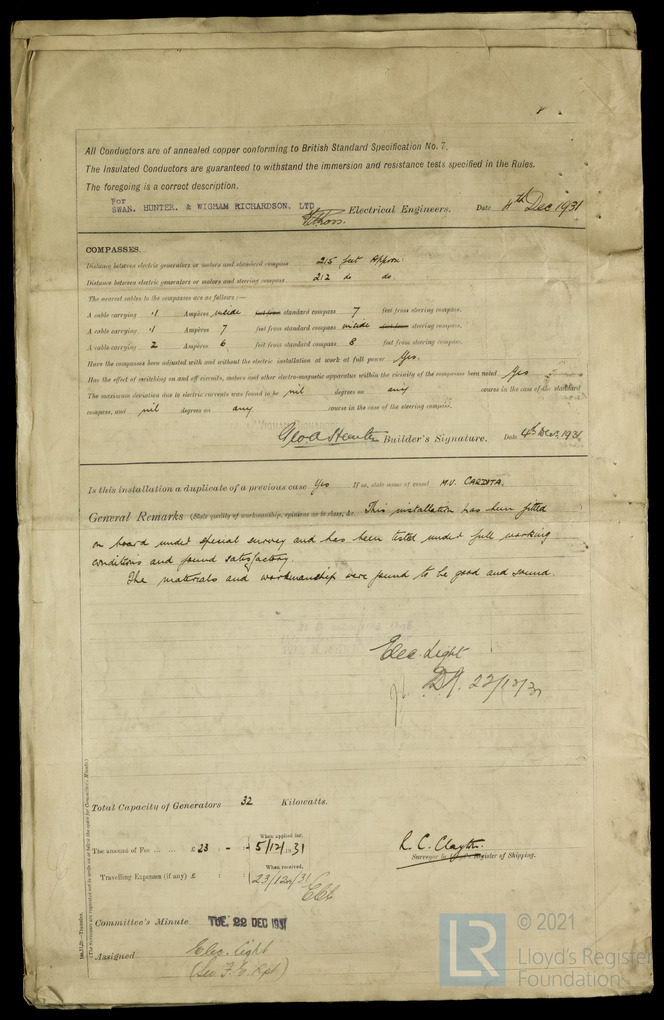 All Conductors are of annealed copper conforming to British Standard Specification No. 7.
The Insulated Conductors are guaranteed to withstand the immersion and resistance tests specified in the Rules.
The foregoing is a correct description.
For
SWAN, HUNTER, & WIGHAM RICHARDSON, LTD Electrical Engineers. Date 4th Dec 1931
COMPASSES.
Distance between electric generators or motors and standard compass 215 feet Approx:
Distance between electric generators or motors and steering compass 212 do do
The nearest cables to the compasses are as follows:—
A cable carrying .1 Ampères inside feet from standard compass 7 feet from steering compass.
A cable carrying .1 Ampères 7 feet from standard compass inside feet from steering compass.
A cable carrying 2 Ampères 6 feet from standard compass 8 feet from steering compass.
Have the compasses been adjusted with and without the electric installation at work at full power Yes.
Has the effect of switching on and off circuits, motors and other electro-magnetic apparatus within the vicinity of the compasses been noted Yes
The maximum deviation due to electric currents was found to be nil degrees on any course in the case of the standard
compass, and nil degrees on any course in the case of the steering compass.
Builder's Signature. Date 4th Dec, 1931
Is this installation a duplicate of a previous case Yes If so, state name of vessel M.V.
General Remarks (State quality of workmanship, opinions as to class, &c. This installation has been fitted
on board under special survey and has been tested under full working
conditions and found satisfactory.
The materials and workmanship were found to be good and sound.
Elec. Light
22/12/31
Total Capacity of Generators 32 Kilowatts.
The amount of Fee ... ... £ 23 : - : When applied for, 5/12/1931
When received,
Travelling Expenses (if any) £ : : 23/12/31
R. C. Clayton.
Surveyor to Lloyd's Register of Shipping.
Committee's Minute TUE. 22 DEC 1931
Assigned Elec. Light
(See F.E. Rpt)
(The Surveyors are requested not to write on or below the space for Committee's Minute.)
© 2021
LR
Lloyd's Register
Foundation